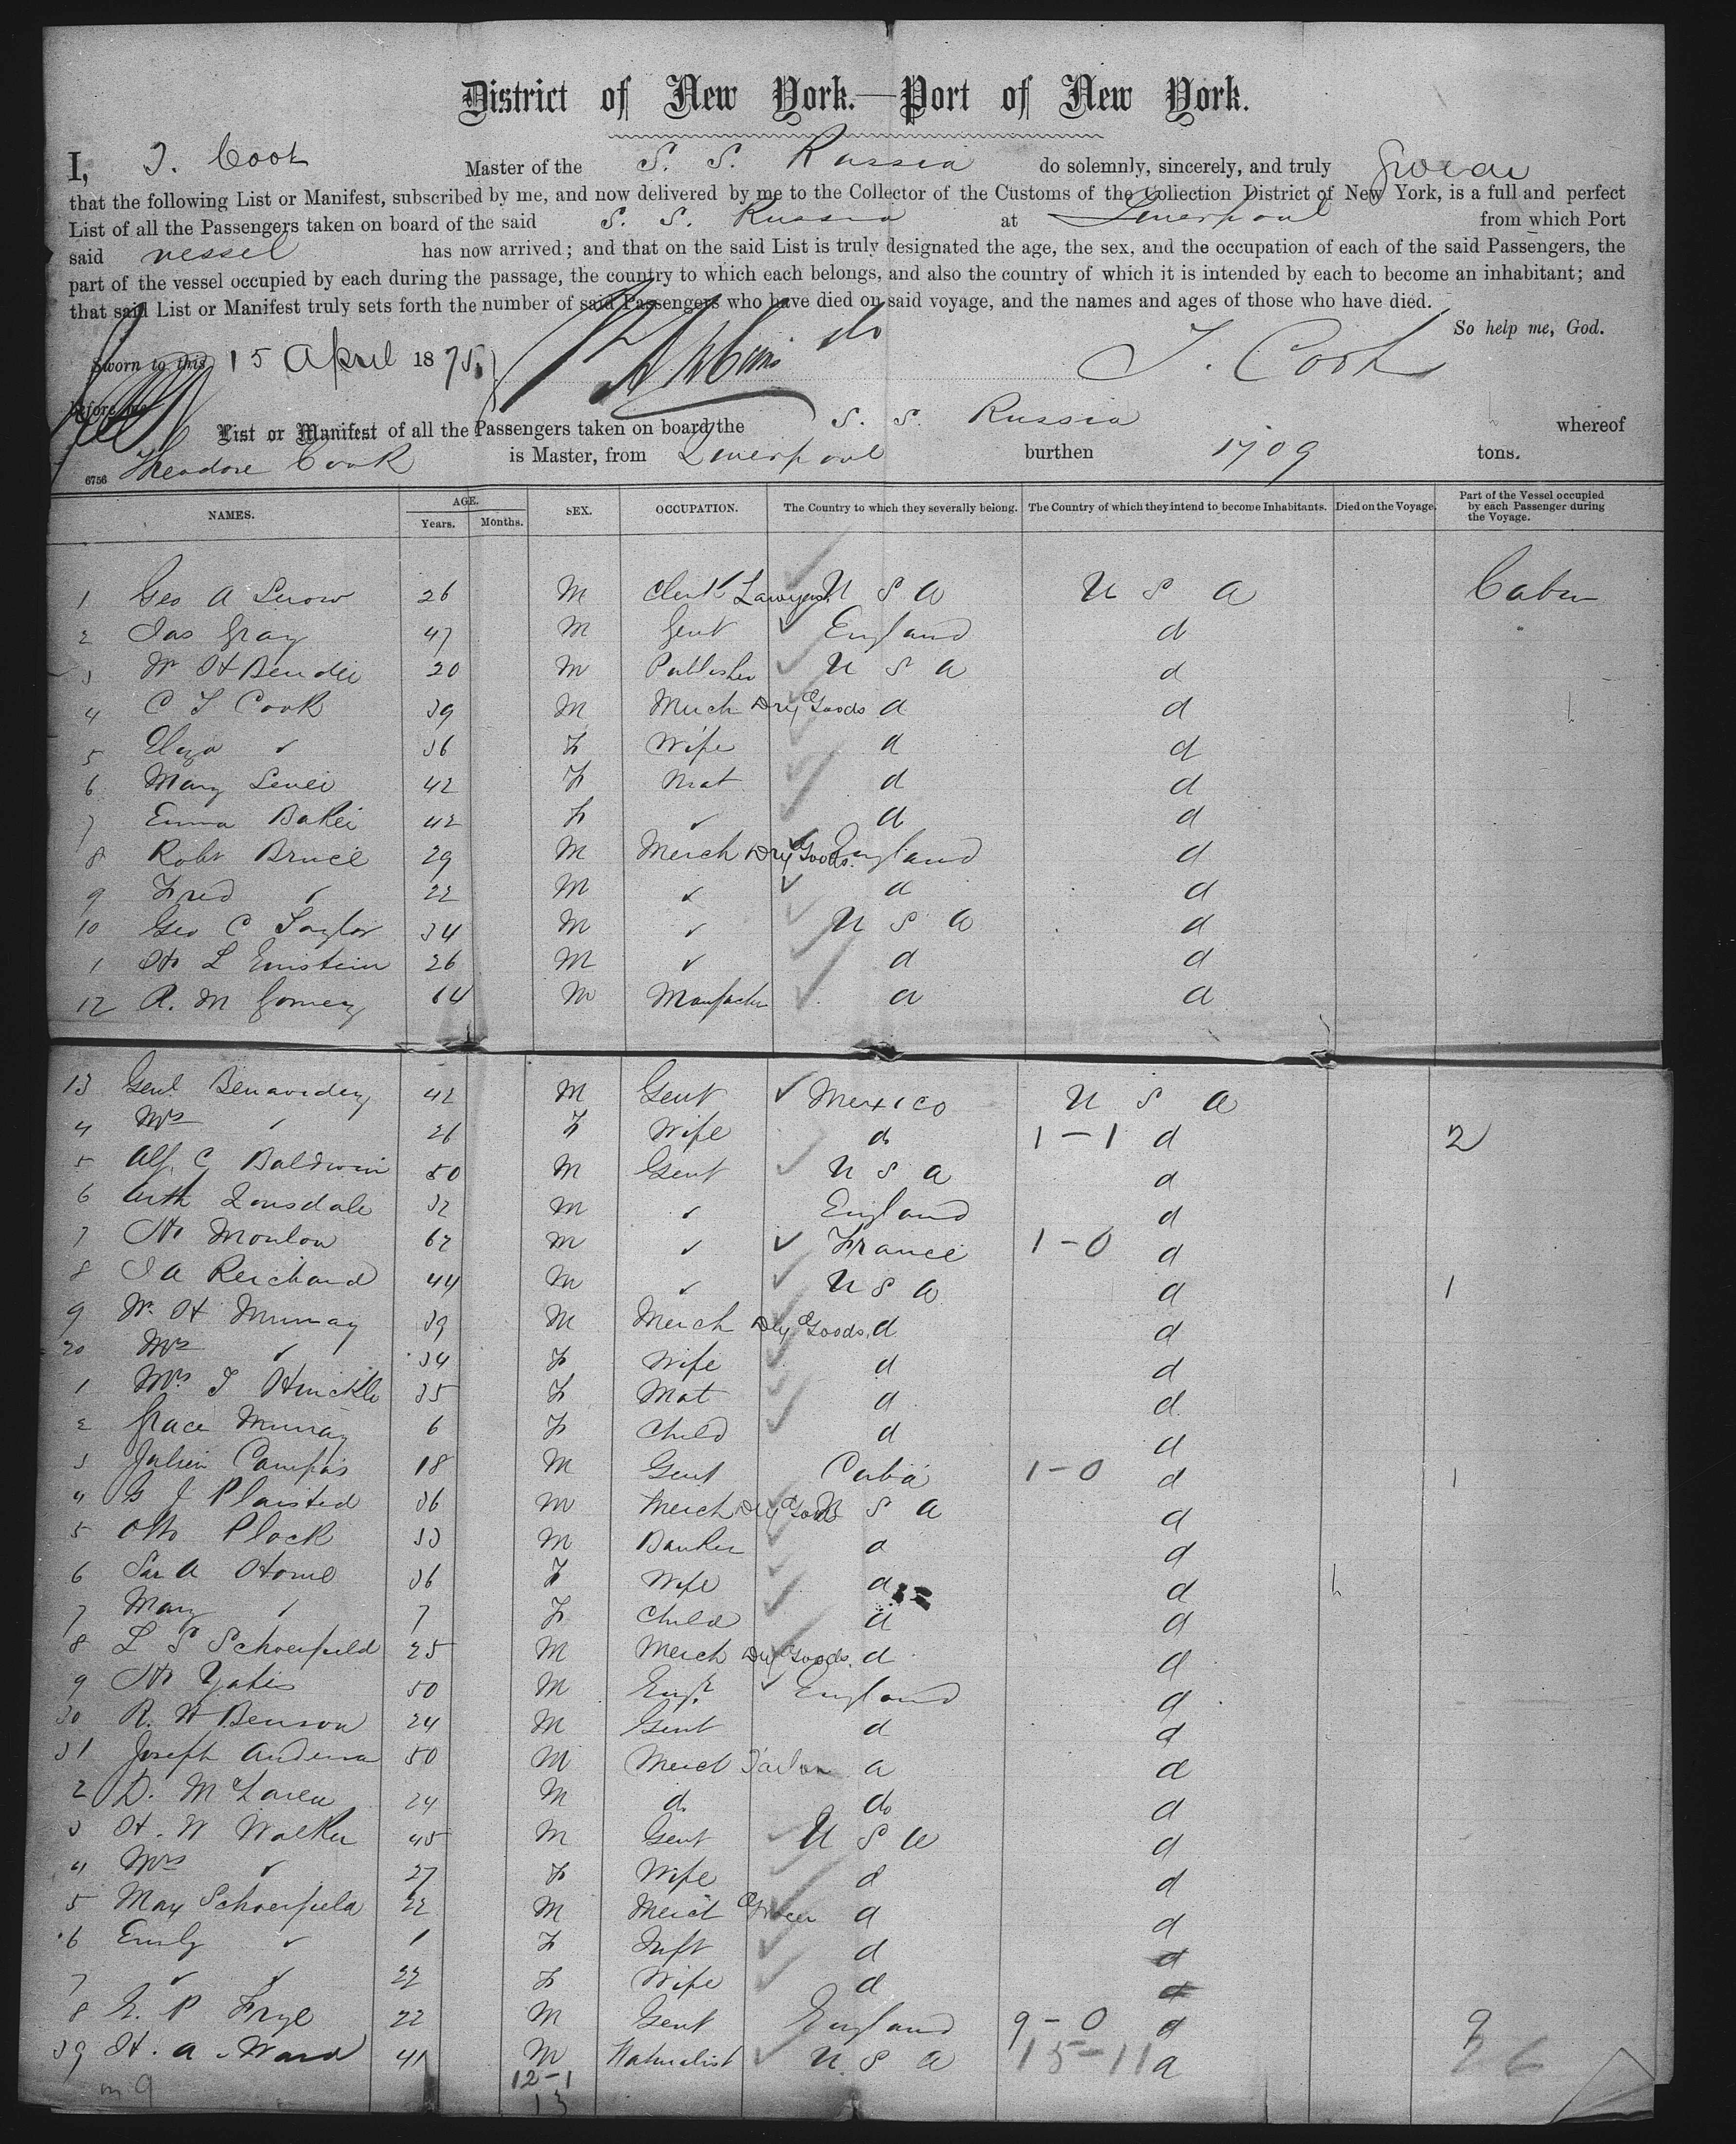 District of New York.—Port of New York.
I, T. Cook Master of the S. S. Russia do solemnly, sincerely, and truly swear
that the following List or Manifest, subscribed by me, and now delivered by me to the Collector of the Customs of the Collection District of New York, is a full and perfect
List of all the Passengers taken on board of the said S. S. Russia at Liverpool from which Port
said vessel has now arrived; and that on the said List is truly designated the age, the sex, and the occupation of each of the said Passengers, the
part of the vessel occupied by each during the passage, the country to which each belongs, and also the country of which it is intended by each to become an inhabitant; and
that said List or Manifest truly sets forth the number of said Passengers who have died on said voyage, and the names and ages of those who have died.
So help me, God.
Sworn to this 15 April 1875 T. Cook
before me
List or Manifest of all the Passengers taken on board the S. S. Russia whereof
6756 Theodore Cook is Master, from Liverpool burthen 1709 tons.
NAMES. AGE. Years. Months. SEX. OCCUPATION. The Country to which they severally belong. The Country of which they intend to become Inhabitants. Died on the Voyage. Part of the Vessel occupied by each Passenger during the Voyage.
1 Geo A 26 M Clerk Lawyers U S A U S A Cabin
2 Jas Gray 47 M Gent England d
3 W H Bender 20 M Publisher U S A d
4 C T Cook 39 M Merch Dry Goods d d
5 Eliza " 36 F Wife d d
6 Mary 42 F Mat d d
7 Emma Baker 42 F " d d
8 Robt Bruce 29 M Merch Dry Goods. England d
9 Fred " 22 M " d d
10 Geo C Taylor 34 M " U S A d
1 L Einstein 26 M " d d
12 R. M Gomez 64 M d d
13 Genl Benavidez 42 M Gent Mexico U S A
4 Mrs " 26 F Wife do 1-1 d 2
5 Alf. C Baldwin 50 M Gent U S A d
6 Arth Lonsdale 32 M " England d
7 62 M " France 1-0 d
8 J A Reichard 44 M " U S A d 1
9 W. H Murray 39 M Merch Dry Goods. d d
20 Mrs " 34 F Wife d d
1 Mrs T Hinckle 35 F Mat d d
2 Grace Murray 6 F Child d d
3 Julien Campos 18 M Gent Cuba 1-0 d 1
4 G J Plaisted 36 M Merch Dry Goods U S A d
5 Otto Plock 33 M Banker d d
6 Sar A Horne 36 F Wife d d
7 Mary " 7 F Child d d
8 L S Schoenfield 25 M Merch Dry Goods. d d
9 Yates 50 M Engr England d
30 R. H Benson 24 M Gent d d
31 Joseph 50 M Merct Tailor d d
2 D. McLaren 24 M do do d
3 H. W Walker 45 M Gent U S A d
4 Mrs " 27 F Wife d d
5 Max Schoenfield 22 M Merct Grocer d d
6 Emily " 1 F Inft d d
7 " " 22 F Wife d d
8 E. P Frye 22 M Gent England 9-0 d 9
39 H. A. Ward 41 M Naturalist U S A 15-11 d 26
m 9 12-1
13